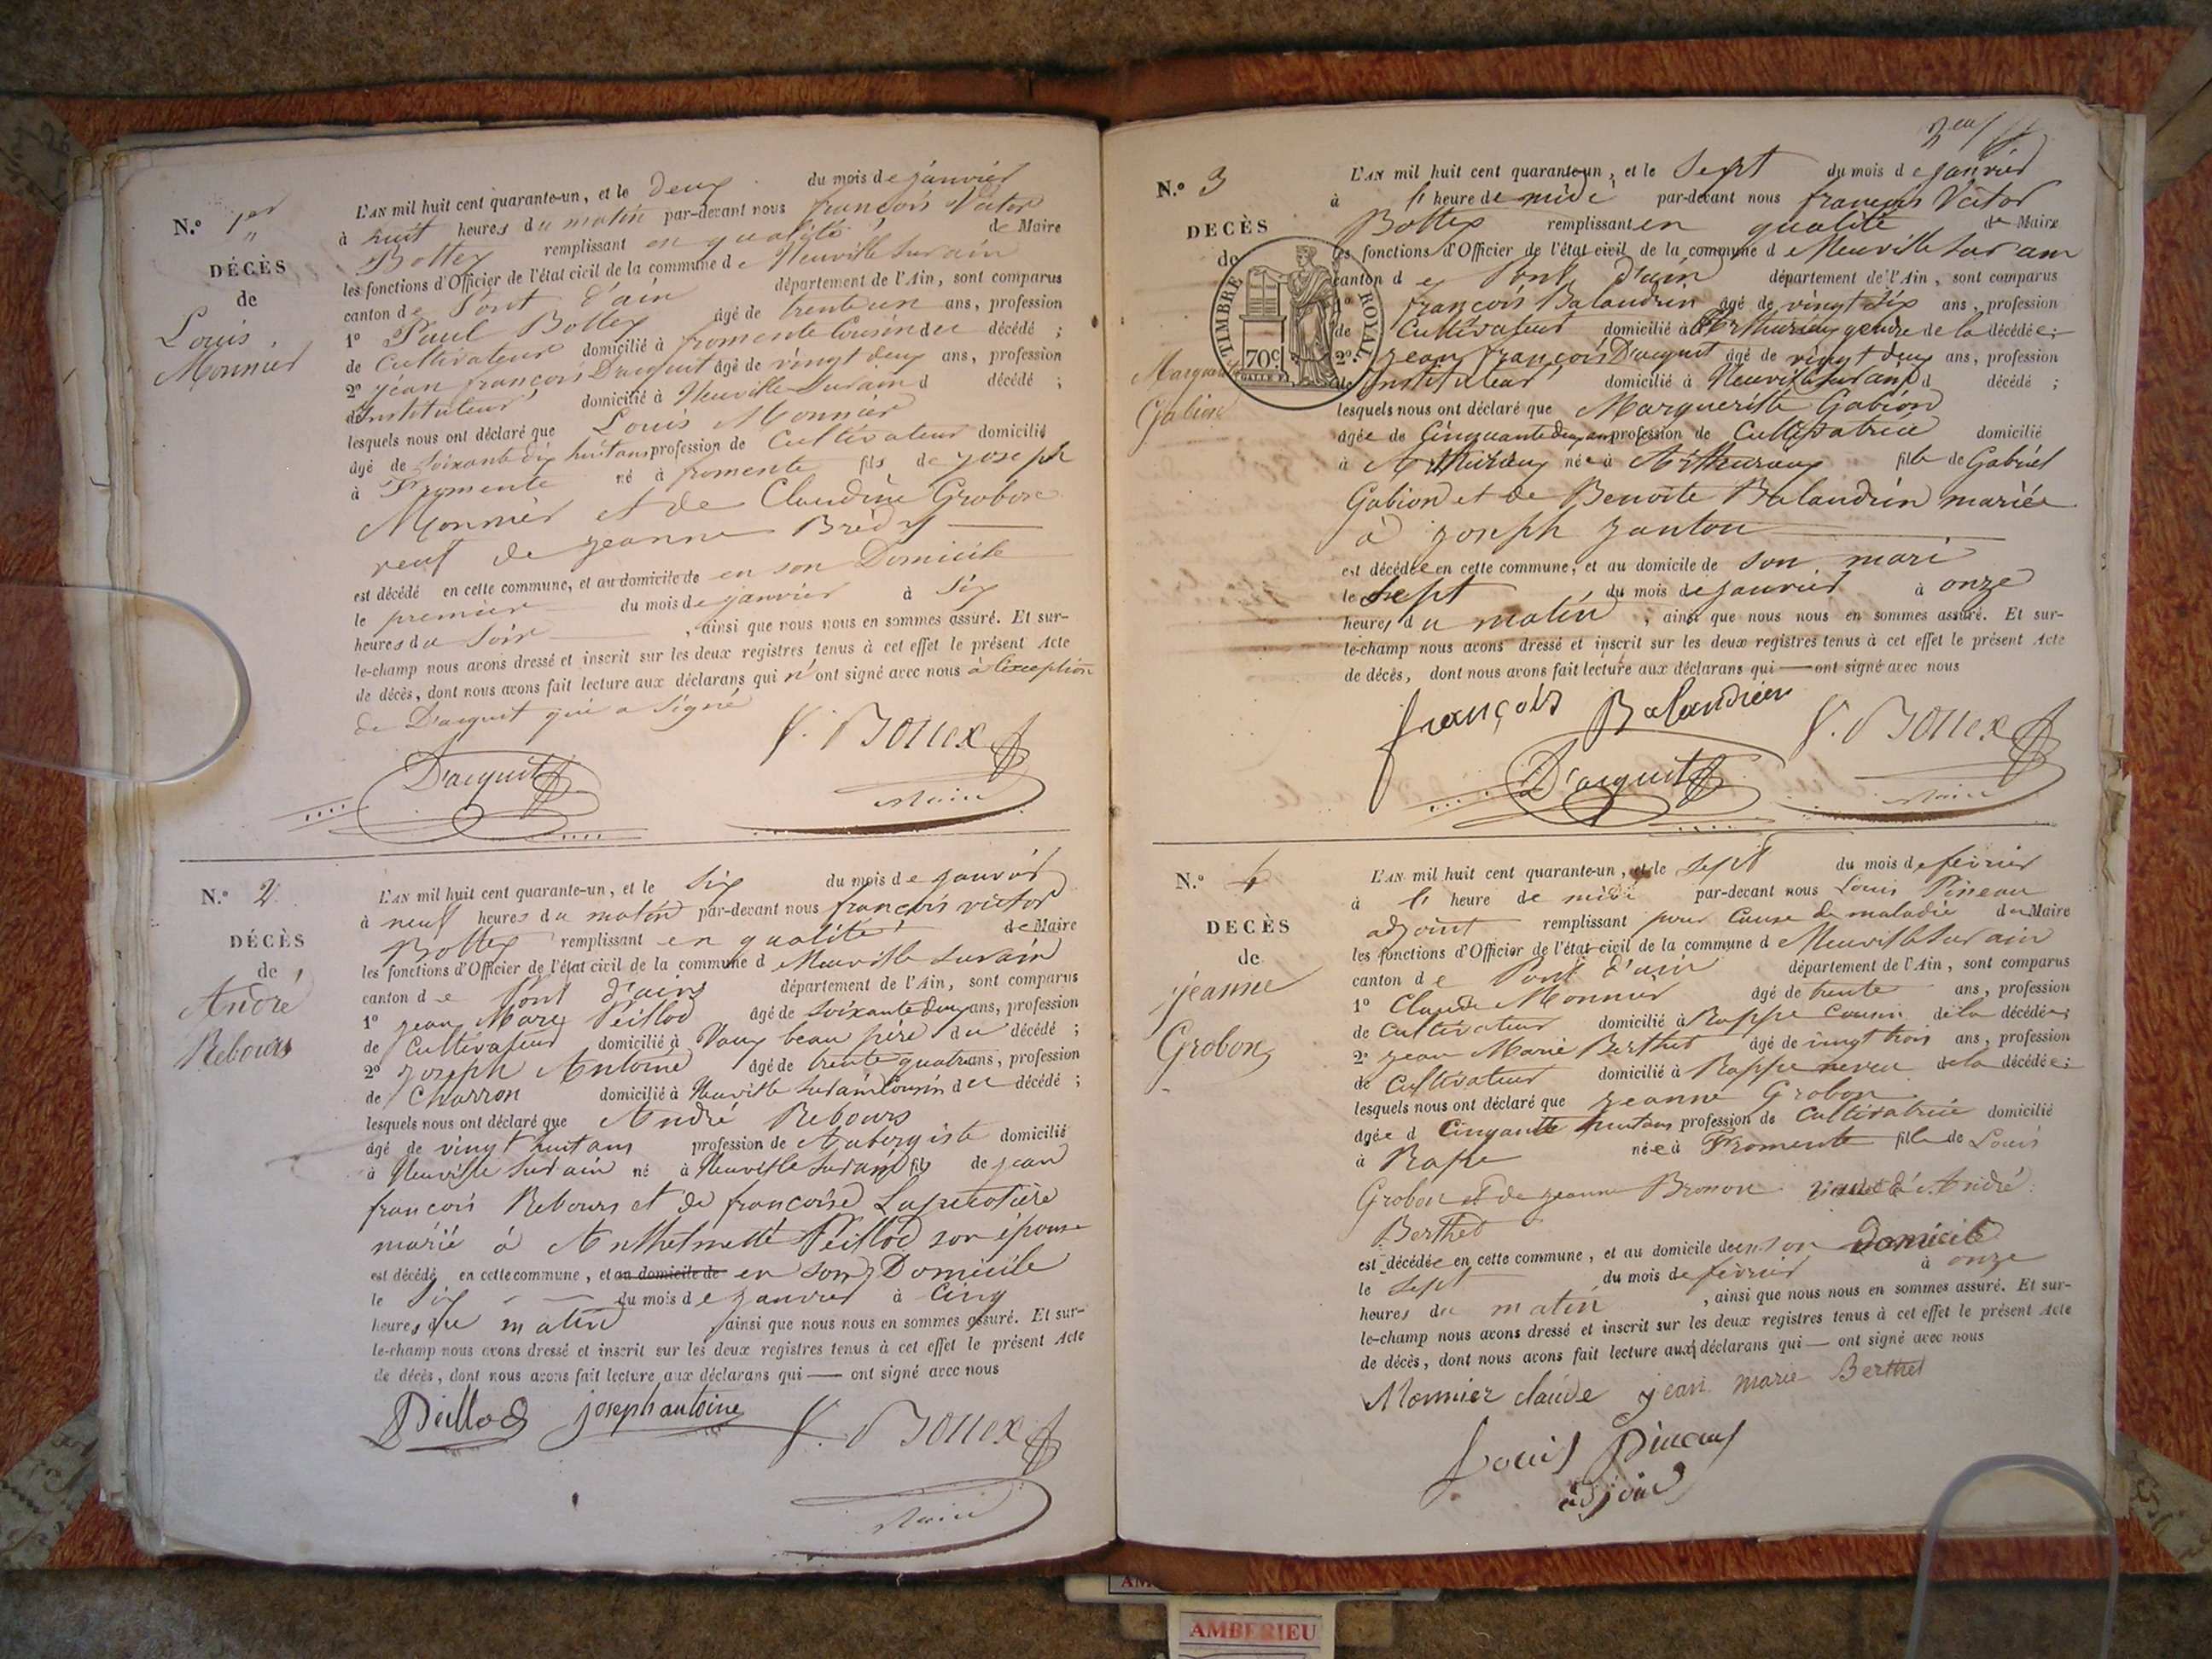 N.º 1er
DÉCÈS
de
Louis
Monnier
L'AN mil huit cent quarante-un, et le Deux du mois de janvier
à huit heures du matin par-devant nous françois Victor
Bottex remplissant en qualité de Maire
les fonctions d'Officier de l'état civil de la commune de Neuville sur ain
canton de Pont d'ain département de l'Ain, sont comparus
1º Paul Bottex âgé de trente un ans, profession
de Cultivateur domicilié à fromente Cousin du décédé ;
2º jean françois D'acquit âgé de vingt deux ans, profession
d'Instituteur domicilié à Neuville sur ain d décédé ;
lesquels nous ont déclaré que Louis Monnier
âgé de soixante dix huit ans profession de Cultivateur domicilié
à Fromente né à fromente fils de joseph
Monnier et de Claudine Grobon
veuf de jeanne Brédy
est décédé en cette commune, et au domicile de en son Domicile
le premier du mois de janvier à Six
heures du Soir, ainsi que nous nous en sommes assuré. Et sur-
le-champ nous avons dressé et inscrit sur les deux registres tenus à cet effet le présent Acte
de décès, dont nous avons fait lecture aux déclarans qui n'ont signé avec nous à l'exception
de D'acquit qui a Signé
V. Bottex
D'acquit
Maire
N.º 2
DÉCÈS
de
André
Rebours
L'AN mil huit cent quarante-un, et le Six du mois de janvier
à neuf heures du matin par-devant nous françois victor
Bottex remplissant en qualité de Maire
les fonctions d'Officier de l'état civil de la commune d e Neuville sur ain
canton d e Pont d'ain département de l'Ain, sont comparus
1º jean Marie Peillod âgé de soixante deux ans, profession
de Cultivateur domicilié à Vaux beau père du décédé ;
2º joseph Antoine âgé de trente quatre ans, profession
de Charron domicilié à Neuville sur ain Cousin du décédé ;
lesquels nous ont déclaré que André Rebours
âgé de vingt huit ans profession de Aubergiste domicilié
à Neuville sur ain né à Neuville sur ain fils de jean
françois Rebours et de françoise
marié à Anthelmette Peillod son épouse
est décédé en cette commune, et au domicile de en son Domicile
le Six du mois de janvier à Cinq
heures du matin ainsi que nous nous en sommes assuré. Et sur-
le-champ nous avons dressé et inscrit sur les deux registres tenus à cet effet le présent Acte
de décès, dont nous avons fait lecture aux déclarans qui — ont signé avec nous
Peillod joseph antoine V. Bottex
Maire
N.º 3
DECÈS
de
Marguerite
Gabion
TIMBRE ROYAL
70 c
L'AN mil huit cent quarante-un, et le Sept du mois d e janvier
à l' heure de midi par-devant nous françois Victor
Bottex remplissant en qualité de Maire
les fonctions d'Officier de l'état civil de la commune d e Neuville sur ain
canton d e Pont d'ain département de l'Ain, sont comparus
1º françois Balandrin âgé de vingt six ans, profession
de Cultivateur domicilié à Arthurieux gendre de la décédée ;
2º jean françois D'acquit âgé de vingt deux ans, profession
de Instituteur domicilié à Neuville sur ain d décédé ;
lesquels nous ont déclaré que Marguerite Gabion
âgée de Cinquante deux ans profession de Cultivatrice domicilié
à Arthurieux née à Arthurieux fille de Gabriel
Gabion et de Benoite Balandrin mariée
à joseph janton
est décédée en cette commune, et au domicile de son mari
le Sept du mois de janvier à onze
heures du matin, ainsi que nous nous en sommes assuré. Et sur-
le-champ nous avons dressé et inscrit sur les deux registres tenus à cet effet le présent Acte
de décès, dont nous avons fait lecture aux déclarans qui — ont signé avec nous
françois Balandrin V. Bottex
D'acquit
Maire
N.º 4
DECÈS
de
jeanne
Grobon
L'AN mil huit cent quarante-un, et le Sept du mois de février
à l' heure de midi par-devant nous Louis Pineau
adjoint remplissant pour Cause de maladie du Maire
les fonctions d'Officier de l'état civil de la commune d e Neuville sur ain
canton d e Pont d'ain département de l'Ain, sont comparus
1º Claude Monnier âgé de trente ans, profession
de Cultivateur domicilié à Rappe Cousin de la décédée ;
2º jean Marie Berthet âgé de vingt trois ans, profession
de Cultivateur domicilié à Rappe neveu de la décédée ;
lesquels nous ont déclaré que jeanne Grobon
âgée d Cinquante huit ans profession de Cultivatrice domicilié
à Rappe née à Fromente fille de Louis
Grobon et de jeanne Bronon d'André
Berthet
est décédée en cette commune, et au domicile de en son Domicile
le Sept du mois de février à onze
heures du matin, ainsi que nous nous en sommes assuré. Et sur-
le-champ nous avons dressé et inscrit sur les deux registres tenus à cet effet le présent Acte
de décès, dont nous avons fait lecture aux déclarans qui — ont signé avec nous
Monnier claude jean marie Berthet
Louis Pineau
adjoint
AMBERIEU